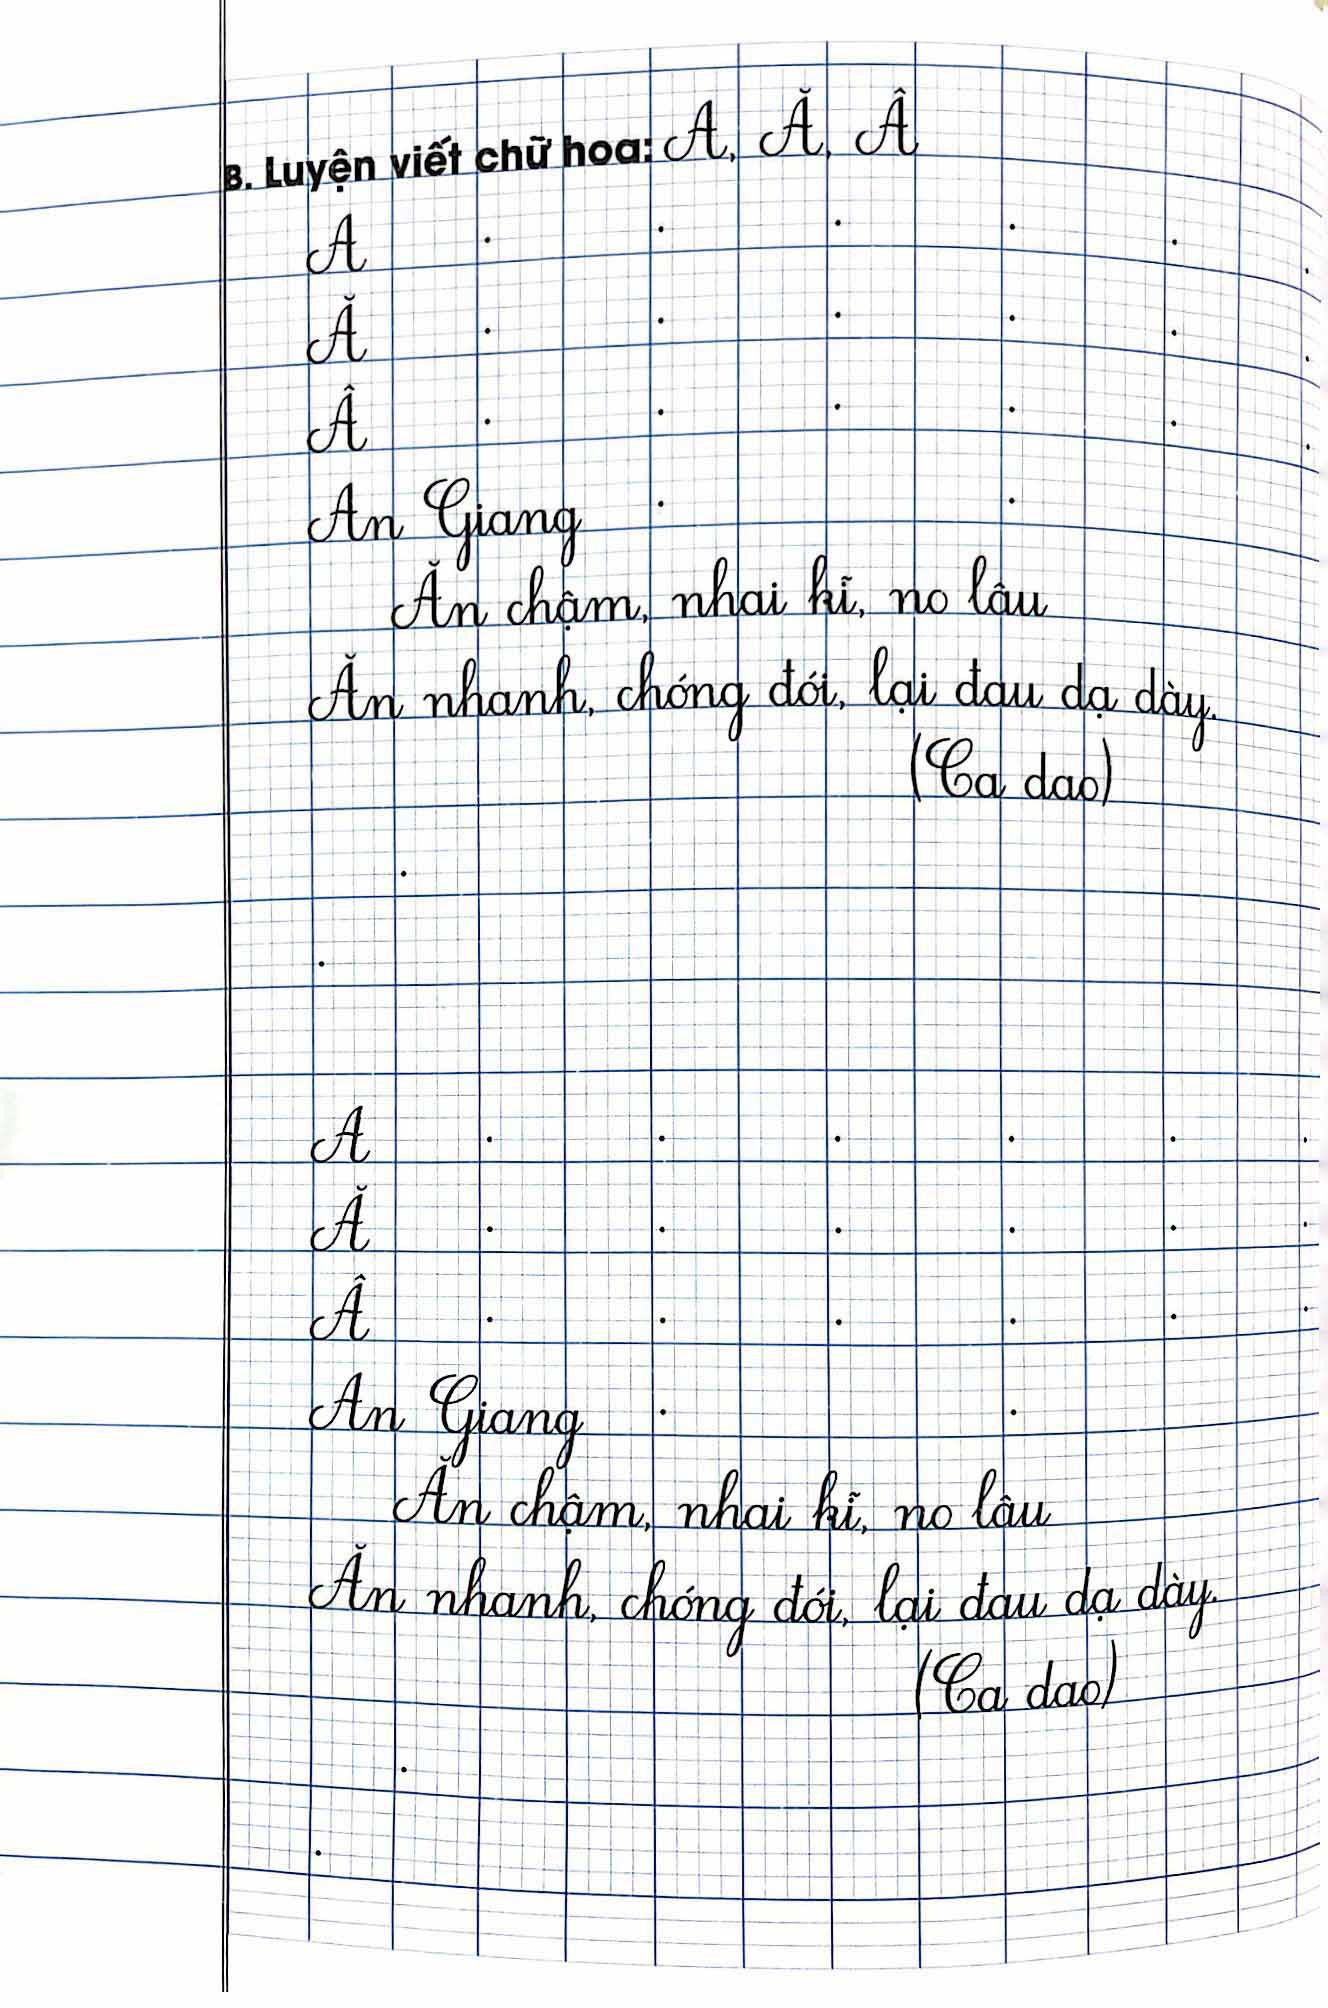 B. Luyện viết chữ hoa: A, Ă, Â
A
Ă
Â
An Giang
Ăn chậm, nhai kĩ, no lâu
Ăn nhanh, chóng đói, lại đau dạ dày.
(Ca dao)
A
Ă
Â
An Giang
Ăn chậm, nhai kĩ, no lâu
Ăn nhanh, chóng đói, lại đau dạ dày.
(Ca dao)